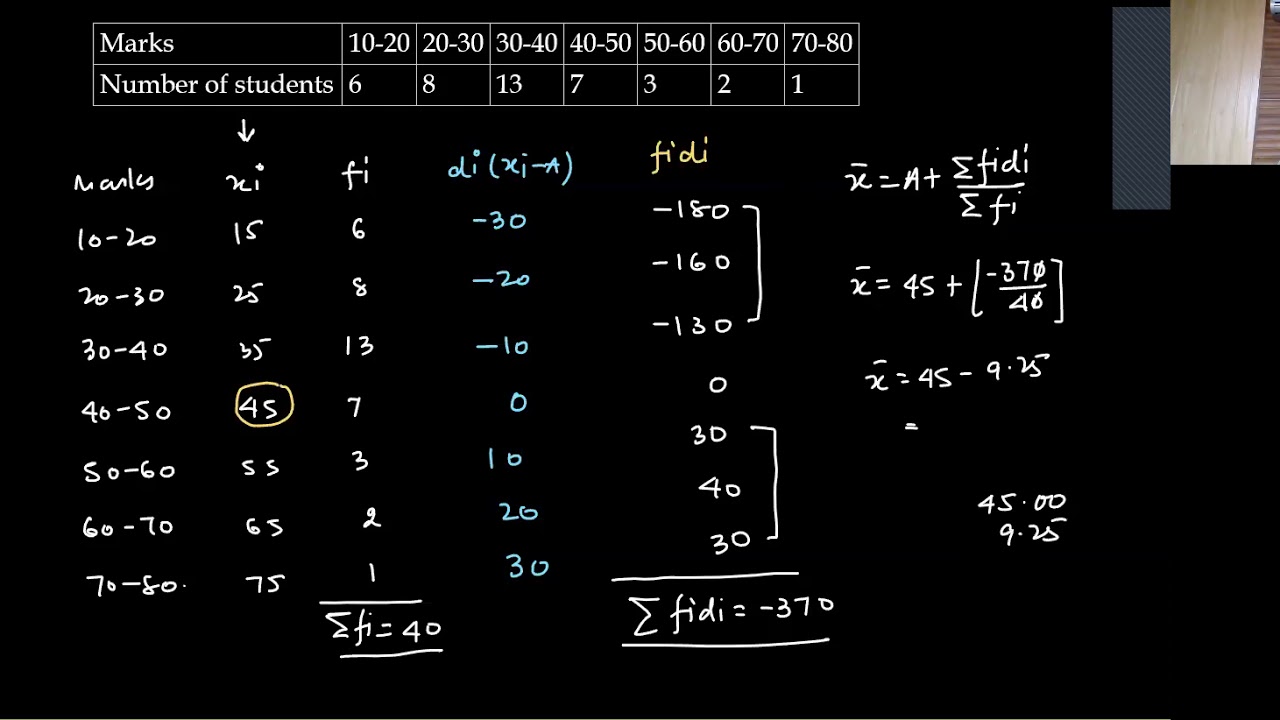 Marks 10-20 20-30 30-40 40-50 50-60 60-70 70-80
Number of students 6 8 13 7 3 2 1
↓
Marks xi fi di (xi-A) fidi
10-20 15 6 -30 -180
20-30 25 8 -20 -160
30-40 35 13 -10 -130
40-50 45 7 0 0
50-60 55 3 10 30
60-70 65 2 20 40
70-80. 75 1 30 30
Σfi = 40 Σ fidi = -370
x̄ = A + Σfidi / Σfi
x̄ = 45 + [-370/40]
x̄ = 45 - 9.25
=
45.00
9.25